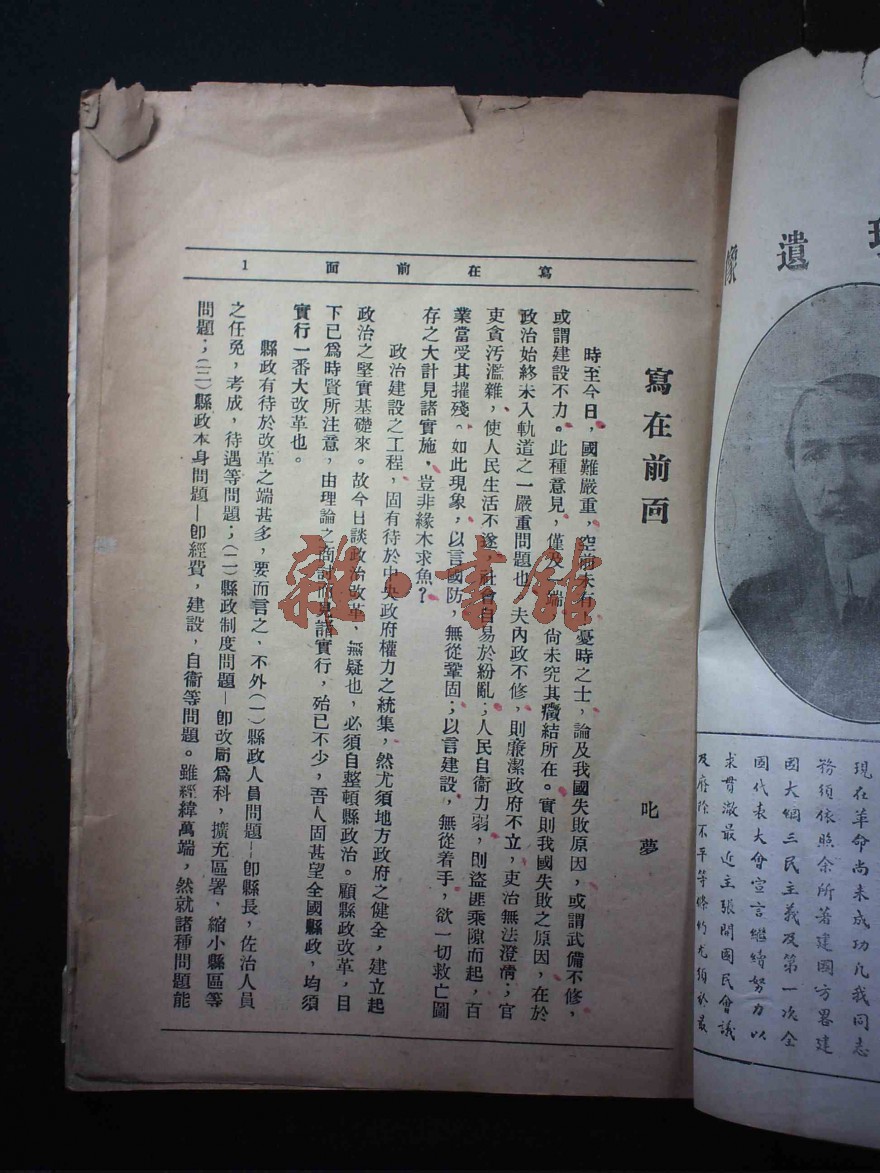 寫在前面 1
寫在前面
叱夢
時至今日，國難嚴重，空前未有，憂時之士，論及我國失敗原因，或謂武備不修，
或謂建設不力。此種意見，僅及一端，尙未究其癥結所在。實則我國失敗之原因，在於
政治始終未入軌道之一嚴重問題也。夫內政不修，則廉潔政府不立，吏治無法澄淸；官
吏貪汚濫雜，使人民生活不遂，社會自易於紛亂；人民自衞力弱，則盜匪乘隙而起，百
業當受其摧殘。如此現象，以言國防，無從鞏固；以言建設，無從着手，欲一切救亡圖
存之大計見諸實施，豈非緣木求魚？
政治建設之工程，固有待於中央政府權力之統集，然尤須地方政府之健全，建立起
政治之堅實基礎來。故今日談政治改革，無疑也，必須自整頓縣政治。顧縣政改革，目
下已爲時賢所注意，由理論之商討而見諸實行，殆已不少，吾人固甚望全國縣政，均須
實行一番大改革也。
縣政有待於改革之端甚多，要而言之，不外（一）縣政人員問題—卽縣長，佐治人員
之任免，考成，待遇等問題；（二）縣政制度問題—卽改局爲科，擴充區署，縮小縣區等
問題；（三）縣政本身問題—卽經費，建設，自衞等問題。雖經緯萬端，然就諸種問題能
雜·書館
遺像
現在革命尚未成功凡我同志
務須依照余所著建國方畧建
國大綱三民主義及第一次全
國代表大會宣言繼續努力以
求貫澈最近主張開國民會議
及廢除不平等條約尤須於最